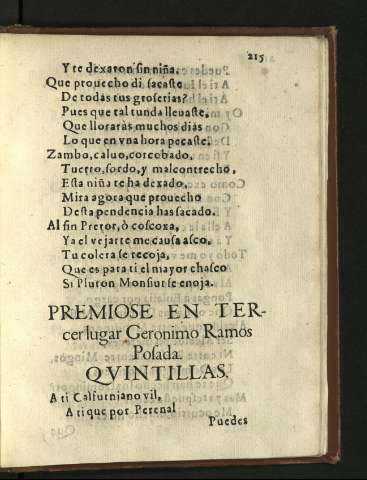 215
Y te dexaron sin niña.
Que prouecho di sacaste
De todas tus groserias?
Pues que tal tunda lleuaste,
Que lloraràs muchos dias
Lo que en vna hora pecaste.
Zambo, caluo, corcobado,
Tuerto, sordo, y malcontrecho,
Esta niña te ha dexado,
Mira agora que prouecho
Desta pendencia has sacado.
Al fin Pretor, ò coscoxa,
Ya el vejarte me causa asco,
Tu colera se recoja,
Que es para ti el mayor chasco
Si Pluton Monsiur se enoja.
PREMIOSE EN TER-
cer lugar Geronimo Ramos
Posada.
QVINTILLAS.
A ti Calfurniano vil,
A ti que por Perenal
Puedes